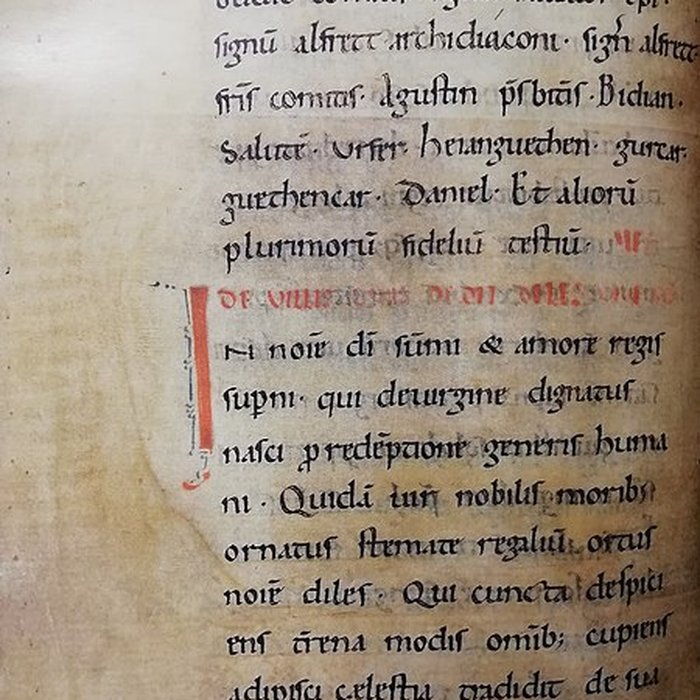 signū alfrett archidiaconi. sigñ alfrett
fr̄is comitis. Agustin p̄sbit̄is. Bidian.
Salutē. Urfer. heranguethen. gurcar.
guethencar. Daniel. Et aliorū
plurimorū fideliū testiū.
DE
In noīe dī sūmi & amore regis
sup̄ni. qui deuirgine dignatus
nasci ꝓ redēptione generis huma
ni. Quidā uir nobilis moribꝫ
ornatus stemate regaliū ortus
noīe diles. Qui cuncta despici
ens t̄rena modis omībꝫ cupiens
adipisci cælestia tradidit de sua